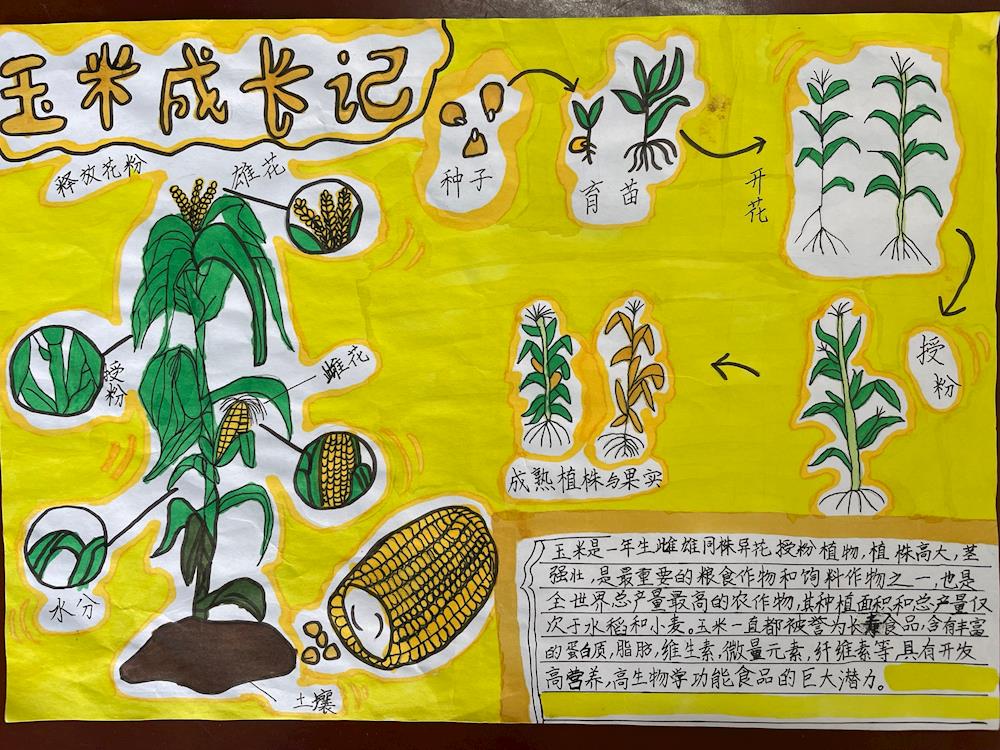 玉米成长记
释放花粉
雄花
种子
育苗
开花
授粉
雌花
授粉
成熟植株与果实
水分
土壤
玉米是一年生雌雄同株异花授粉植物,植株高大,茎
强壮,是最重要的粮食作物和饲料作物之一,也是
全世界总产量最高的农作物,其种植面积和总产量仅
次于水稻和小麦。玉米一直都被誉为长寿食品,含有丰富
的蛋白质,脂肪,维生素,微量元素,纤维素等,具有开发
高营养,高生物学功能食品的巨大潜力。